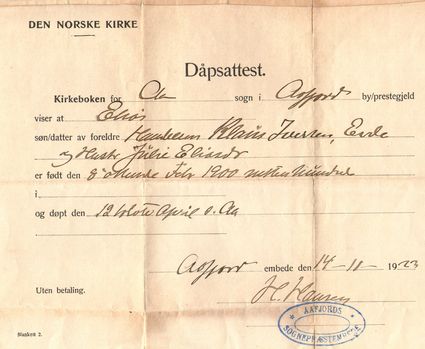 DEN NORSKE KIRKE
Dåpsattest.
Kirkeboken for Aa sogn i Aafjord by/prestegjeld
viser at Elias
søn/datter av foreldre Klaus Iversen,
og Hustr Julie
er født den 8 Febr 1900 nittenhundrede
i
og døpt den 12 April s. Aa
Aafjord embede den 14-11- 1923
Uten betaling.
H. Hansen
AAFJORDS
SOGNEPRÆSTEMBEDE
Blankett 2.